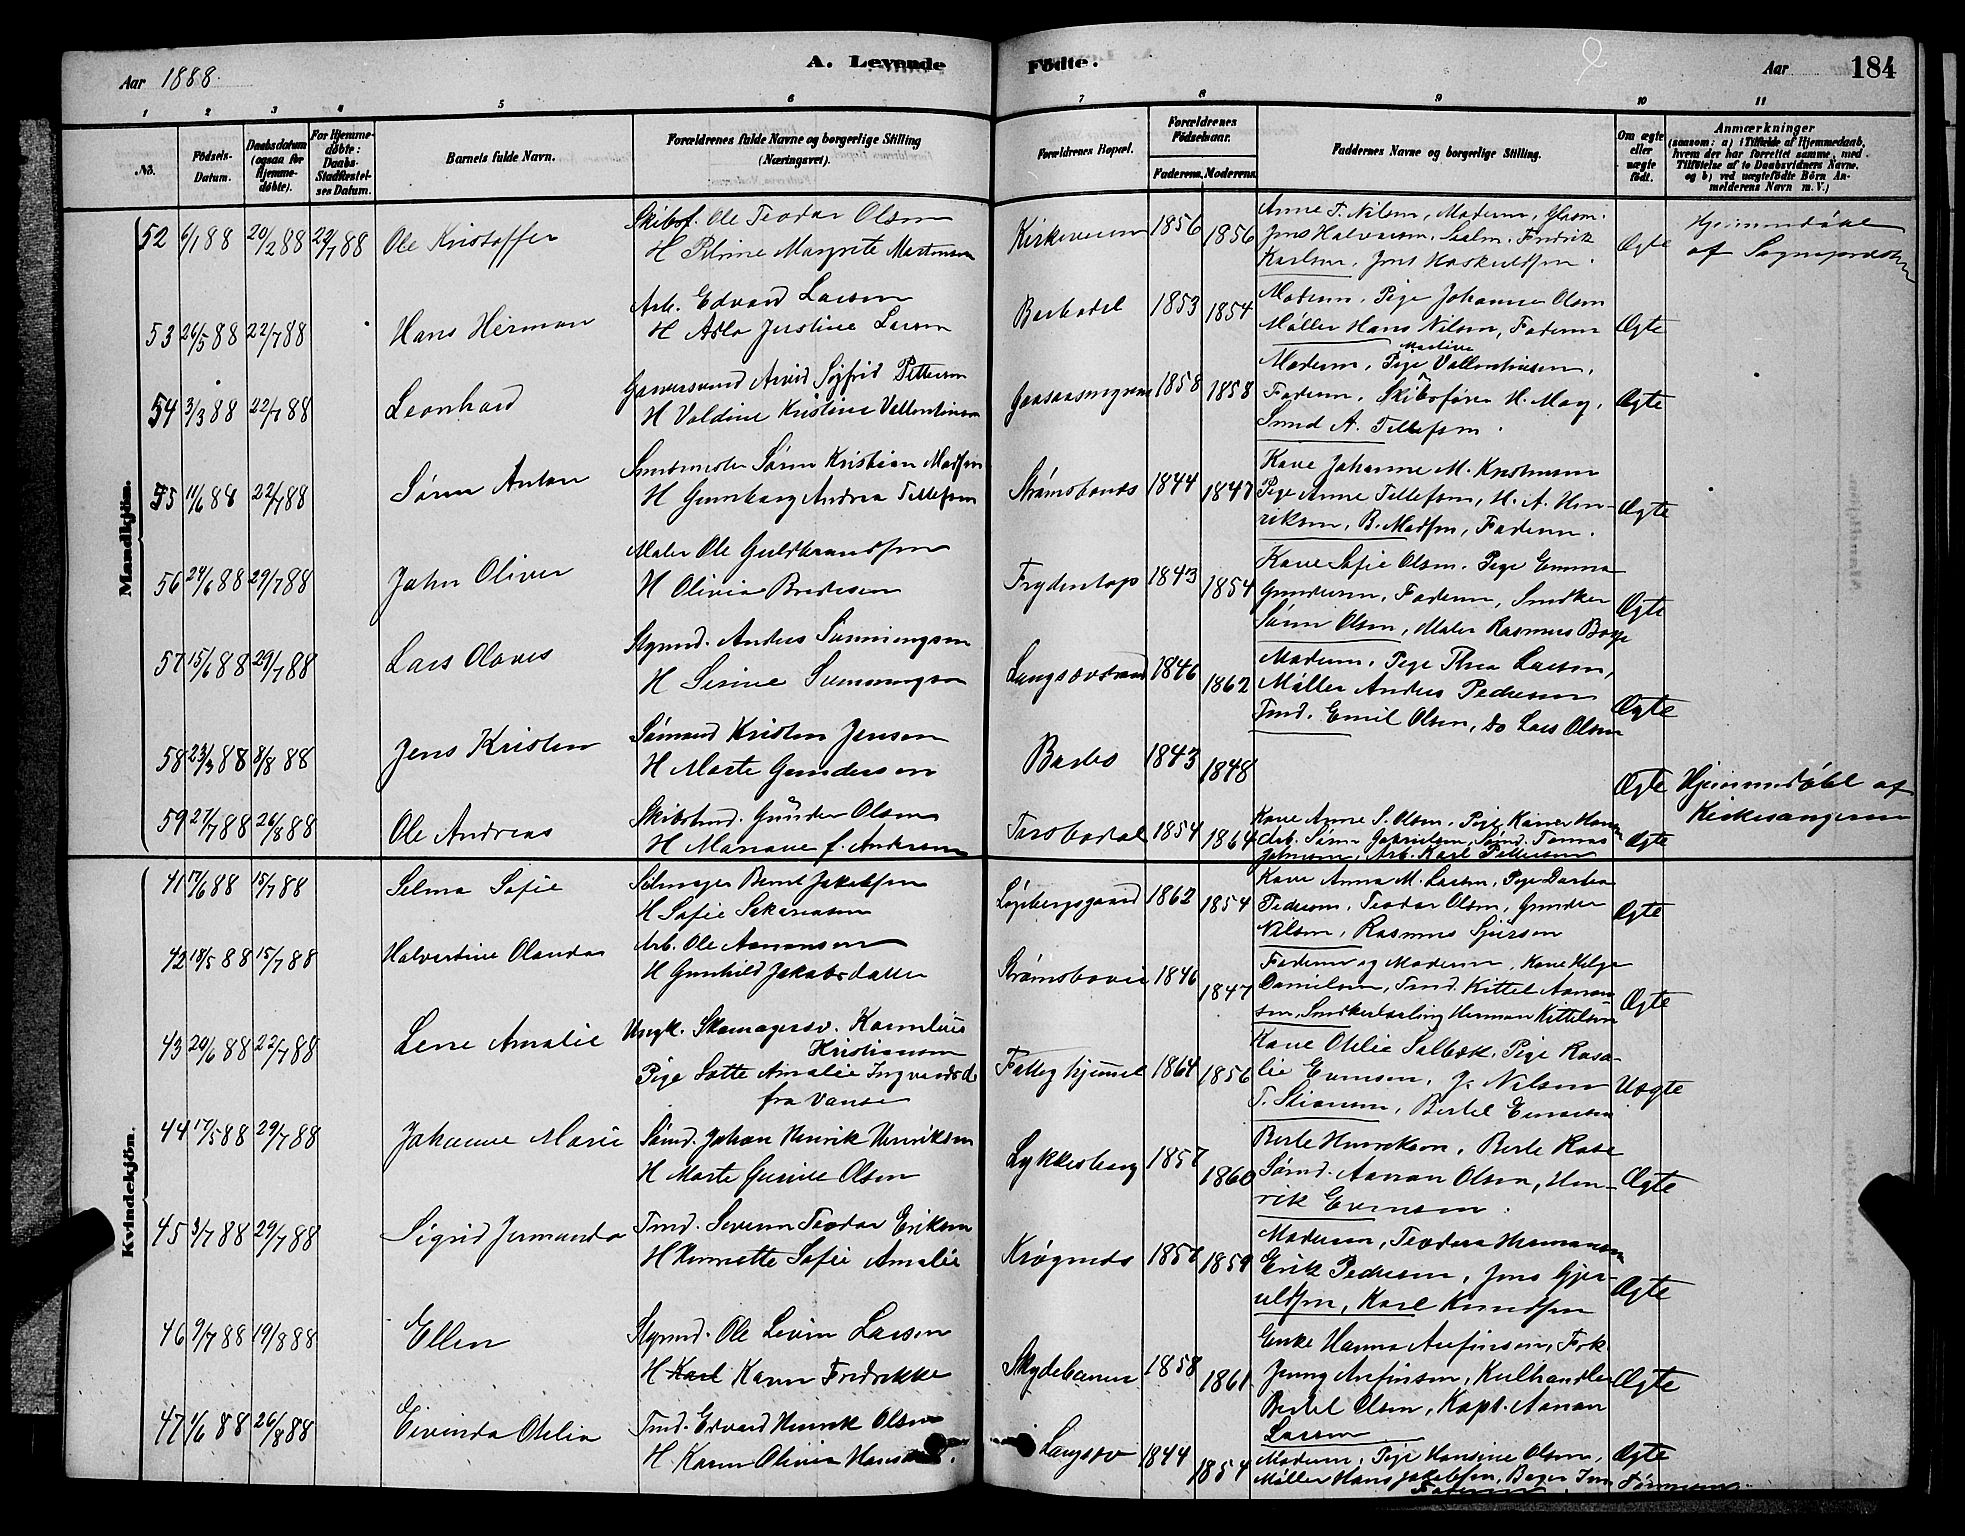 Aar 1888.
A. Levende
Fødte.
Aar
184
1 2 3 4 5 6 7 8 9 10 11
No.
Fødsels-
Datum.
Daabsdatum
(ogsaa for
Hjemme-
døbte).
For Hjemme-
døbte:
Daabs-
Stadfæstel-
ses Datum.
Barnets fulde Navn.
Forældrenes fulde Navne og borgerlige Stilling
(Næringsvei).
Forældrenes Bopæl.
Forældrenes
Fødselsaar.
Faderens. Moderens.
Faddernes Navne og borgerlige Stilling.
Om ægte
eller
uægte
født.
Anmærkninger
(saasom: a) i Tilfælde af Hjemmedaab,
hvem der har forrettet samme, med
Tilføielse af to Daabsvidners Navne,
og b) ved uægtefødte Børn An-
melderens Navn m. V.)
Mandkjön.
52 6/1 88 20/2 88 29/7 88 Ole Kristoffer
Skibsf. Ole Teodor Olsen
H Petrine Margrete Mortensen
Kirkeveien 1856 1856
Anne T. Nilsen, Moderen,
Jens Halvorsen, Fredrik
Karlsen, Jens
Ægte
Hjemmedøbt
af Sognepræsten
53 26/5 88 22/7 88 Hans Herman
Arb. Edvard Larsen
H Asla Justine Larsen
Barbodal 1853 1854
Moderen, Pige Johanne Olsen
Møller Hans Nilsen, Faderen
Ægte
54 3/3 88 22/7 88 Leonhard
Garversvend Arvid Sigfrid Pettersen
H Valdine Kristine Vallentinsen
1858 1858
Moderen, Pige Vallentinsen,
Faderen, Skibsfører H. May,
Smed A. Tellefsen.
Ægte
55 11/6 88 22/7 88 Søren Anton
Smedmester Søren Kristian Madsen
H Gunborg Andrea Tellefsen
Strømsbonæs 1844 1847
Kone Johanne M. Kristensen
Pige Anne Tellefsen, H. A. Hen-
riksen, B. Madsen, Faderen.
Ægte
56 24/6 88 29/7 88 John Oliver
Maler Ole Guldbrandsen
H Olivia Bredesen
Frydentop 1843 1854
Kone Sofie Olsen, Pige Emma
Gundersen, Faderen, Snedker
Søren Olsen, Maler Rasmus Boye
Ægte
57 15/6 88 29/7 88 Lars Olaves
Styrmd. Anders Svenningsen
H Serine Svenningsen
Langsævstrand 1846 1862
Moderen, Pige Thea Larsen,
Møller Anders Pedersen
Tmd. Emil Olsen, Do Lars Olsen
Ægte
58 23/3 88 3/8 88 Jens Kristen
Sømand Kristen Jensen
H Marte Gundersen
Barbo 1843 1848
Ægte
Hjemmedøbt af
Kirkesangeren
59 27/7 88 26/8 88 Ole Andreas
Skibstmd. Gunder Olsen
H Mariane f. Andersen
Torsbodal 1854 1864
Kone Anne S. Olsen, Pige Karen Hansen
Arb. Søren Gabrielsen, Sømd. Tomas
Johnsen, Arb. Karl Pettersen
Ægte
Kvindekjön.
41 17/6 88 15/7 88 Selma Sofie
Seilmager Bernt Jakobsen
H Sofie Sakariasen
Løibergsgaard 1862 1854
Kone Anna M. Larsen, Pige Dortea
Pedersen, Teodor Olsen, Gunder
Nilsen, Rasmus Sjursen
Ægte
42 18/5 88 15/7 88 Halvertine Olanda
Arb. Ole Aanonsen
H Gunhild Jakobsdatter
Strømsboveie 1846 1847
Faderen og Moderen, Kone Helga
Danielsen, Tmd. Kittel Aanon-
sen, Snedkerlærling Herman Kittelsen
Ægte
43 20/6 88 22/7 88 Lene Amalie
Ungk. Skomagersv. Kornelius
Kristiansen
Pige Lotte Amalie Ingvardsd.
fra Vanse
Fattighjemmet 1864 1856
Kone Otelie Salbek, Pige Rosa-
lie Evensen, J. Nilsen
T. Stiansen, Bertel Evensen
Uægte
44 17/5 88 29/7 88 Johanne Marie
Sømd. Johan Henrik Henriksen
H Marte Gurine Olsen
Lykkesborg 1857 1860
Berte Henriksen, Berte Rose
Sømd. Aanon Olsen, Hen-
rik Evensen.
Ægte
45 3/7 88 29/7 88 Sigrid Jermanda
Tmd. Severin Teodor Eriksen
H Henriette Sofie Amalie
Krøgenes 1857 1859
Moderen, Teodora Hermansen
Erik Pedersen, Jens Gjer-
uldsen, Karl Knudsen
Ægte
46 9/7 88 19/8 88 Ellen
Styrmd. Ole Levin Larsen
H Karen Fredrikke
Skydebanen 1858 1861
Enke Hanna Arefinsen, Frk.
Jenny Arefinsen, Kulhandler
Bertel Olsen, Kapt. Aanon
Larsen
Ægte
47 1/6 88 26/8 88 Eivinda Otelia
Tmd. Edvard Henrik Olsen
H. Karen Olivia Hans
Langsæv 1844 1854
Moderen, Pige Hansine Olsen,
Møller Hans Jakobsen, Bager
Faderen
Ægte